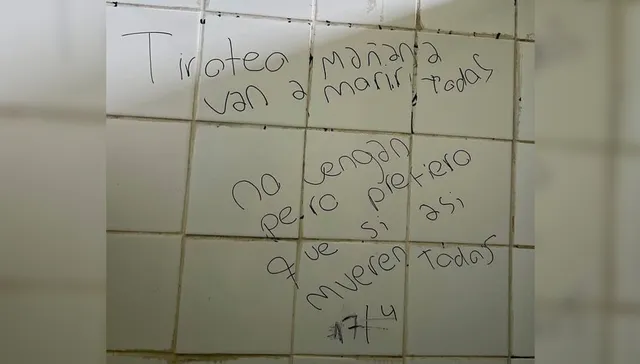 Tirotea mañana
van a marir todas
no vengan
pero prefiero
que si asi
mueren todas
17/4